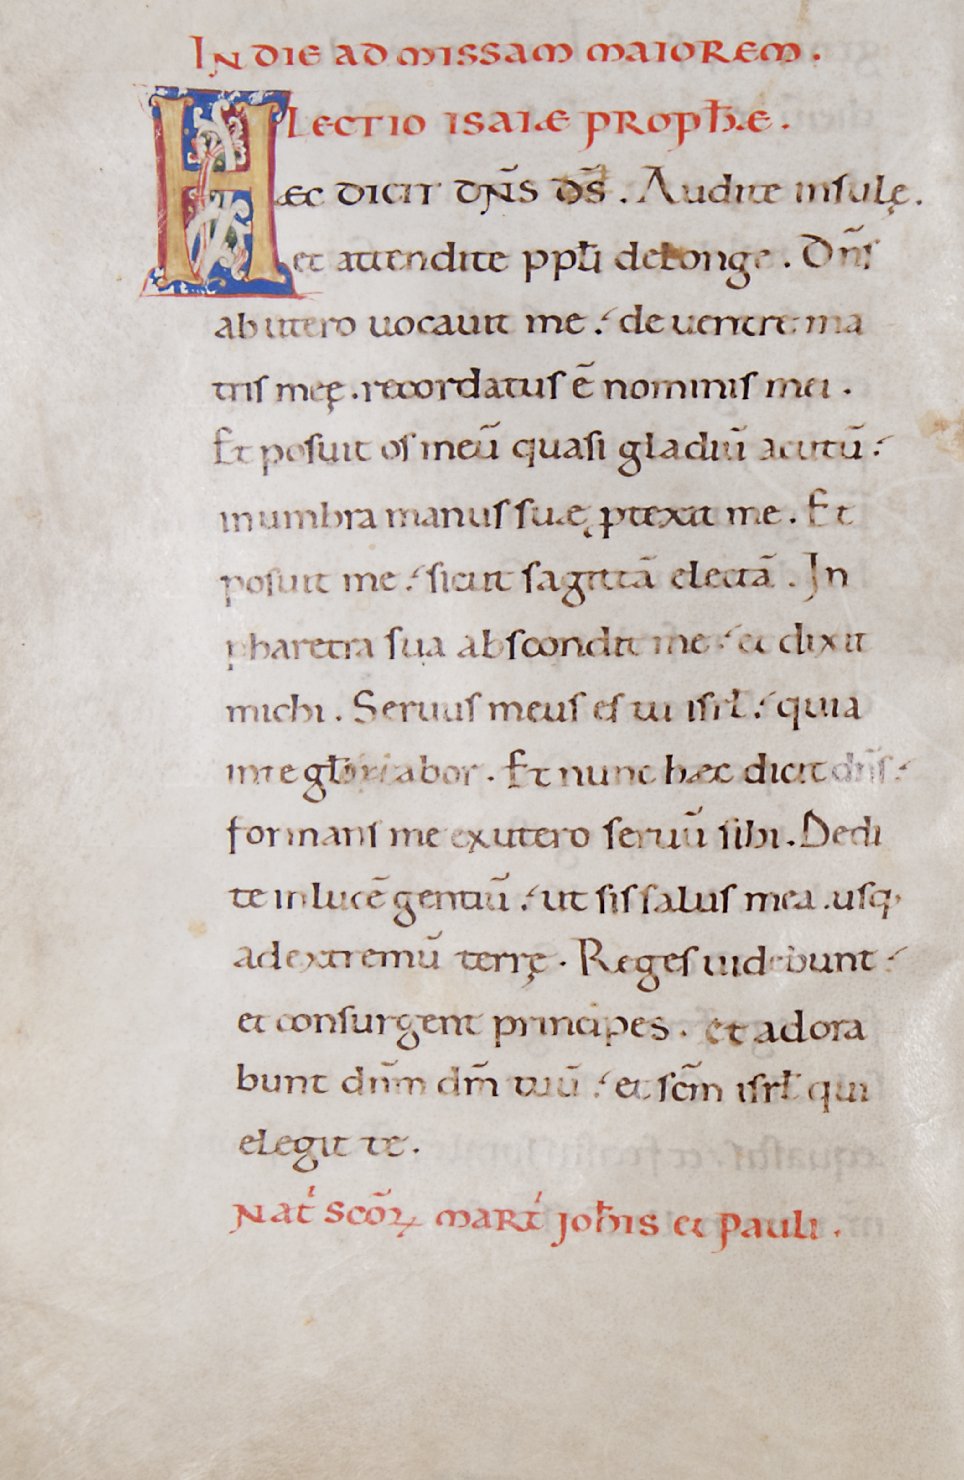 IN DIE AD MISSAM MAIOREM.
LECTIO ISAIAE PROPHAE.
HAEC DICIT DN̄S D̄S. Audite insulę.
et attendite ppli̅ delonge. Dn̄s
ab utero uocauit me. de uentre ma
tris meę. recordatus ē nominis mei.
Et posuit os meū quasi gladiū acutū.
in umbra manus suę ꝓtexit me. Et
posuit me. sicut sagittā electā. In
pharetra sua abscondit me. et dixit
michi. Seruus meus es tu isrl̅. quia
inte gloriabor. Et nunc haec dicit dn̄s.
formans me exutero seruū sibi. Dedi
te inlucē gentiū. ut sis salus mea. usq;
adextremū terrę. Reges uidebunt
et consurgent principes. et adora
bunt dn̄m dm̄ tuū. et scm̄ isrl̅ qui
elegit te.
NAT̄ SCŌꝜ MART̄ JOHĪS et PAULI.